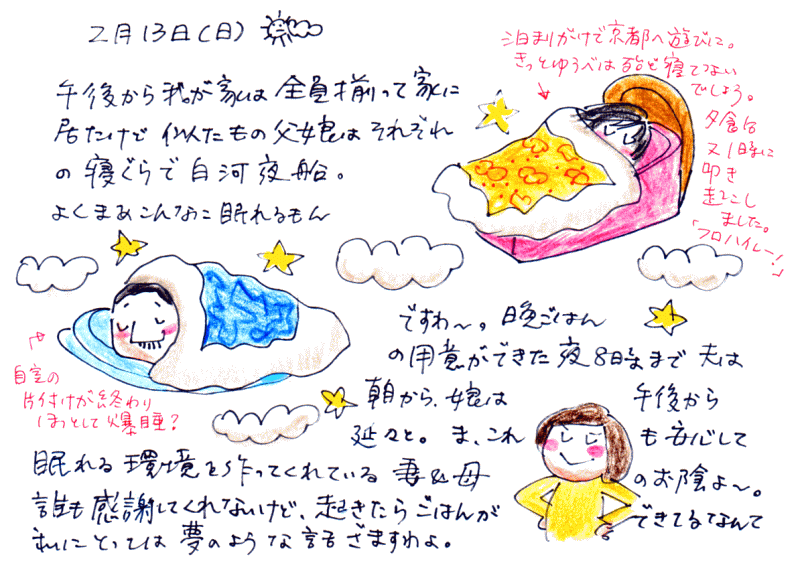 2月13日(日)
午後から我が家は全員揃って家に
居たけど似たもの父娘はそれぞれ
の寝ぐらで白河夜船。
よくまあこんなに眠れるもん
ですわ〜。晩ごはん
の用意ができた夜8時まで夫は
朝から、娘は午後から
延々と。ま、これも安心して
眠れる環境を作ってくれている妻&母のお陰よ〜。
誰も感謝してくれないけど、起きたらごはんができてるなんて
私にとっては夢のような話ざますわよ。
泊まりがけで京都へ遊びに。
きっとゆうべは殆ど寝てない
でしょう。
夕食台
又1時に
叩き
起こし
ました。
「フロハイレー!」
自室の
片付けが終わり
ほっとして爆睡?